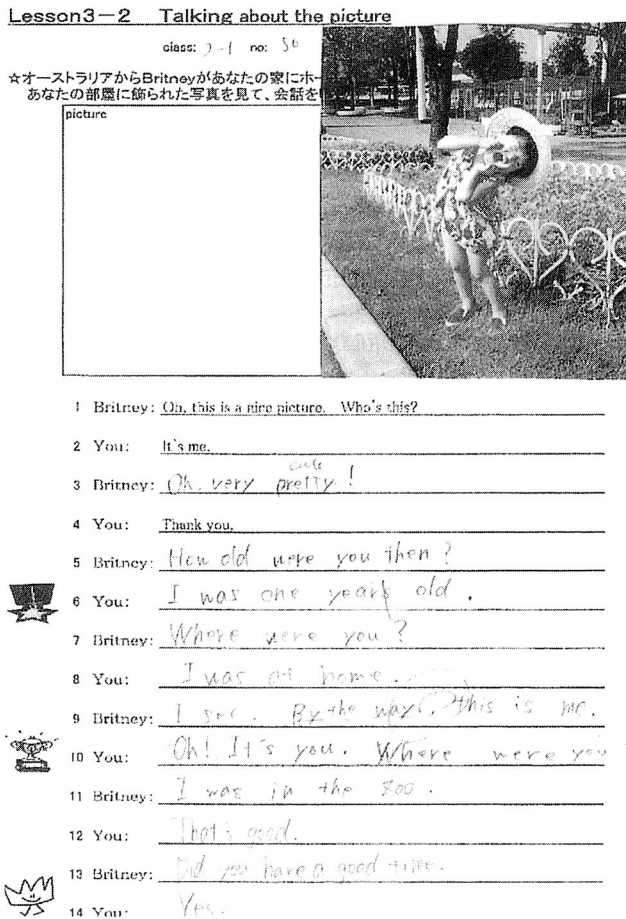 Lesson3－2 Talking about the picture
class: 2-1 no:
☆オーストラリアからBritneyがあなたの家にホー
あなたの部屋に飾られた写真を見て、会話を
picture
1 Britney: Oh, this is a nice picture. Who's this?
2 You: It's me.
cute
3 Britney: Oh, very pretty!
4 You: Thank you.
5 Britney: How old were you then?
6 You: I was one years old.
7 Britney: Where were you?
8 You: I was at home.
9 Britney: I see. By the way, this is me.
10 You: Oh! It's you. Where were you
11 Britney: I was in the zoo.
12 You: That's good.
13 Britney: Did you have a good time.
14 You: Yes.